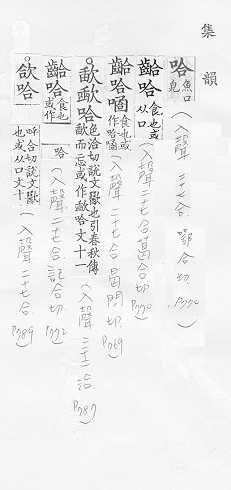 集韻
哈 魚口皃 (入聲 二十七合 鄂合切 P770)
齝哈 食也或从口 (入聲 二十七合 葛合切 P770)
齝哈嗰 食也或作哈嗰 (入聲 二十七合 曷閤切 P769)
歃哈 色洽切說文歠也引春秋傳歃而忘或作哈文十一 (入聲 三十一洽 P787)
齝哈 食也或作哈 (入聲 二十七合 託合切 P772)
欱哈 呼合切說文歠也或从口文十一 (入聲 二十七合 P789)